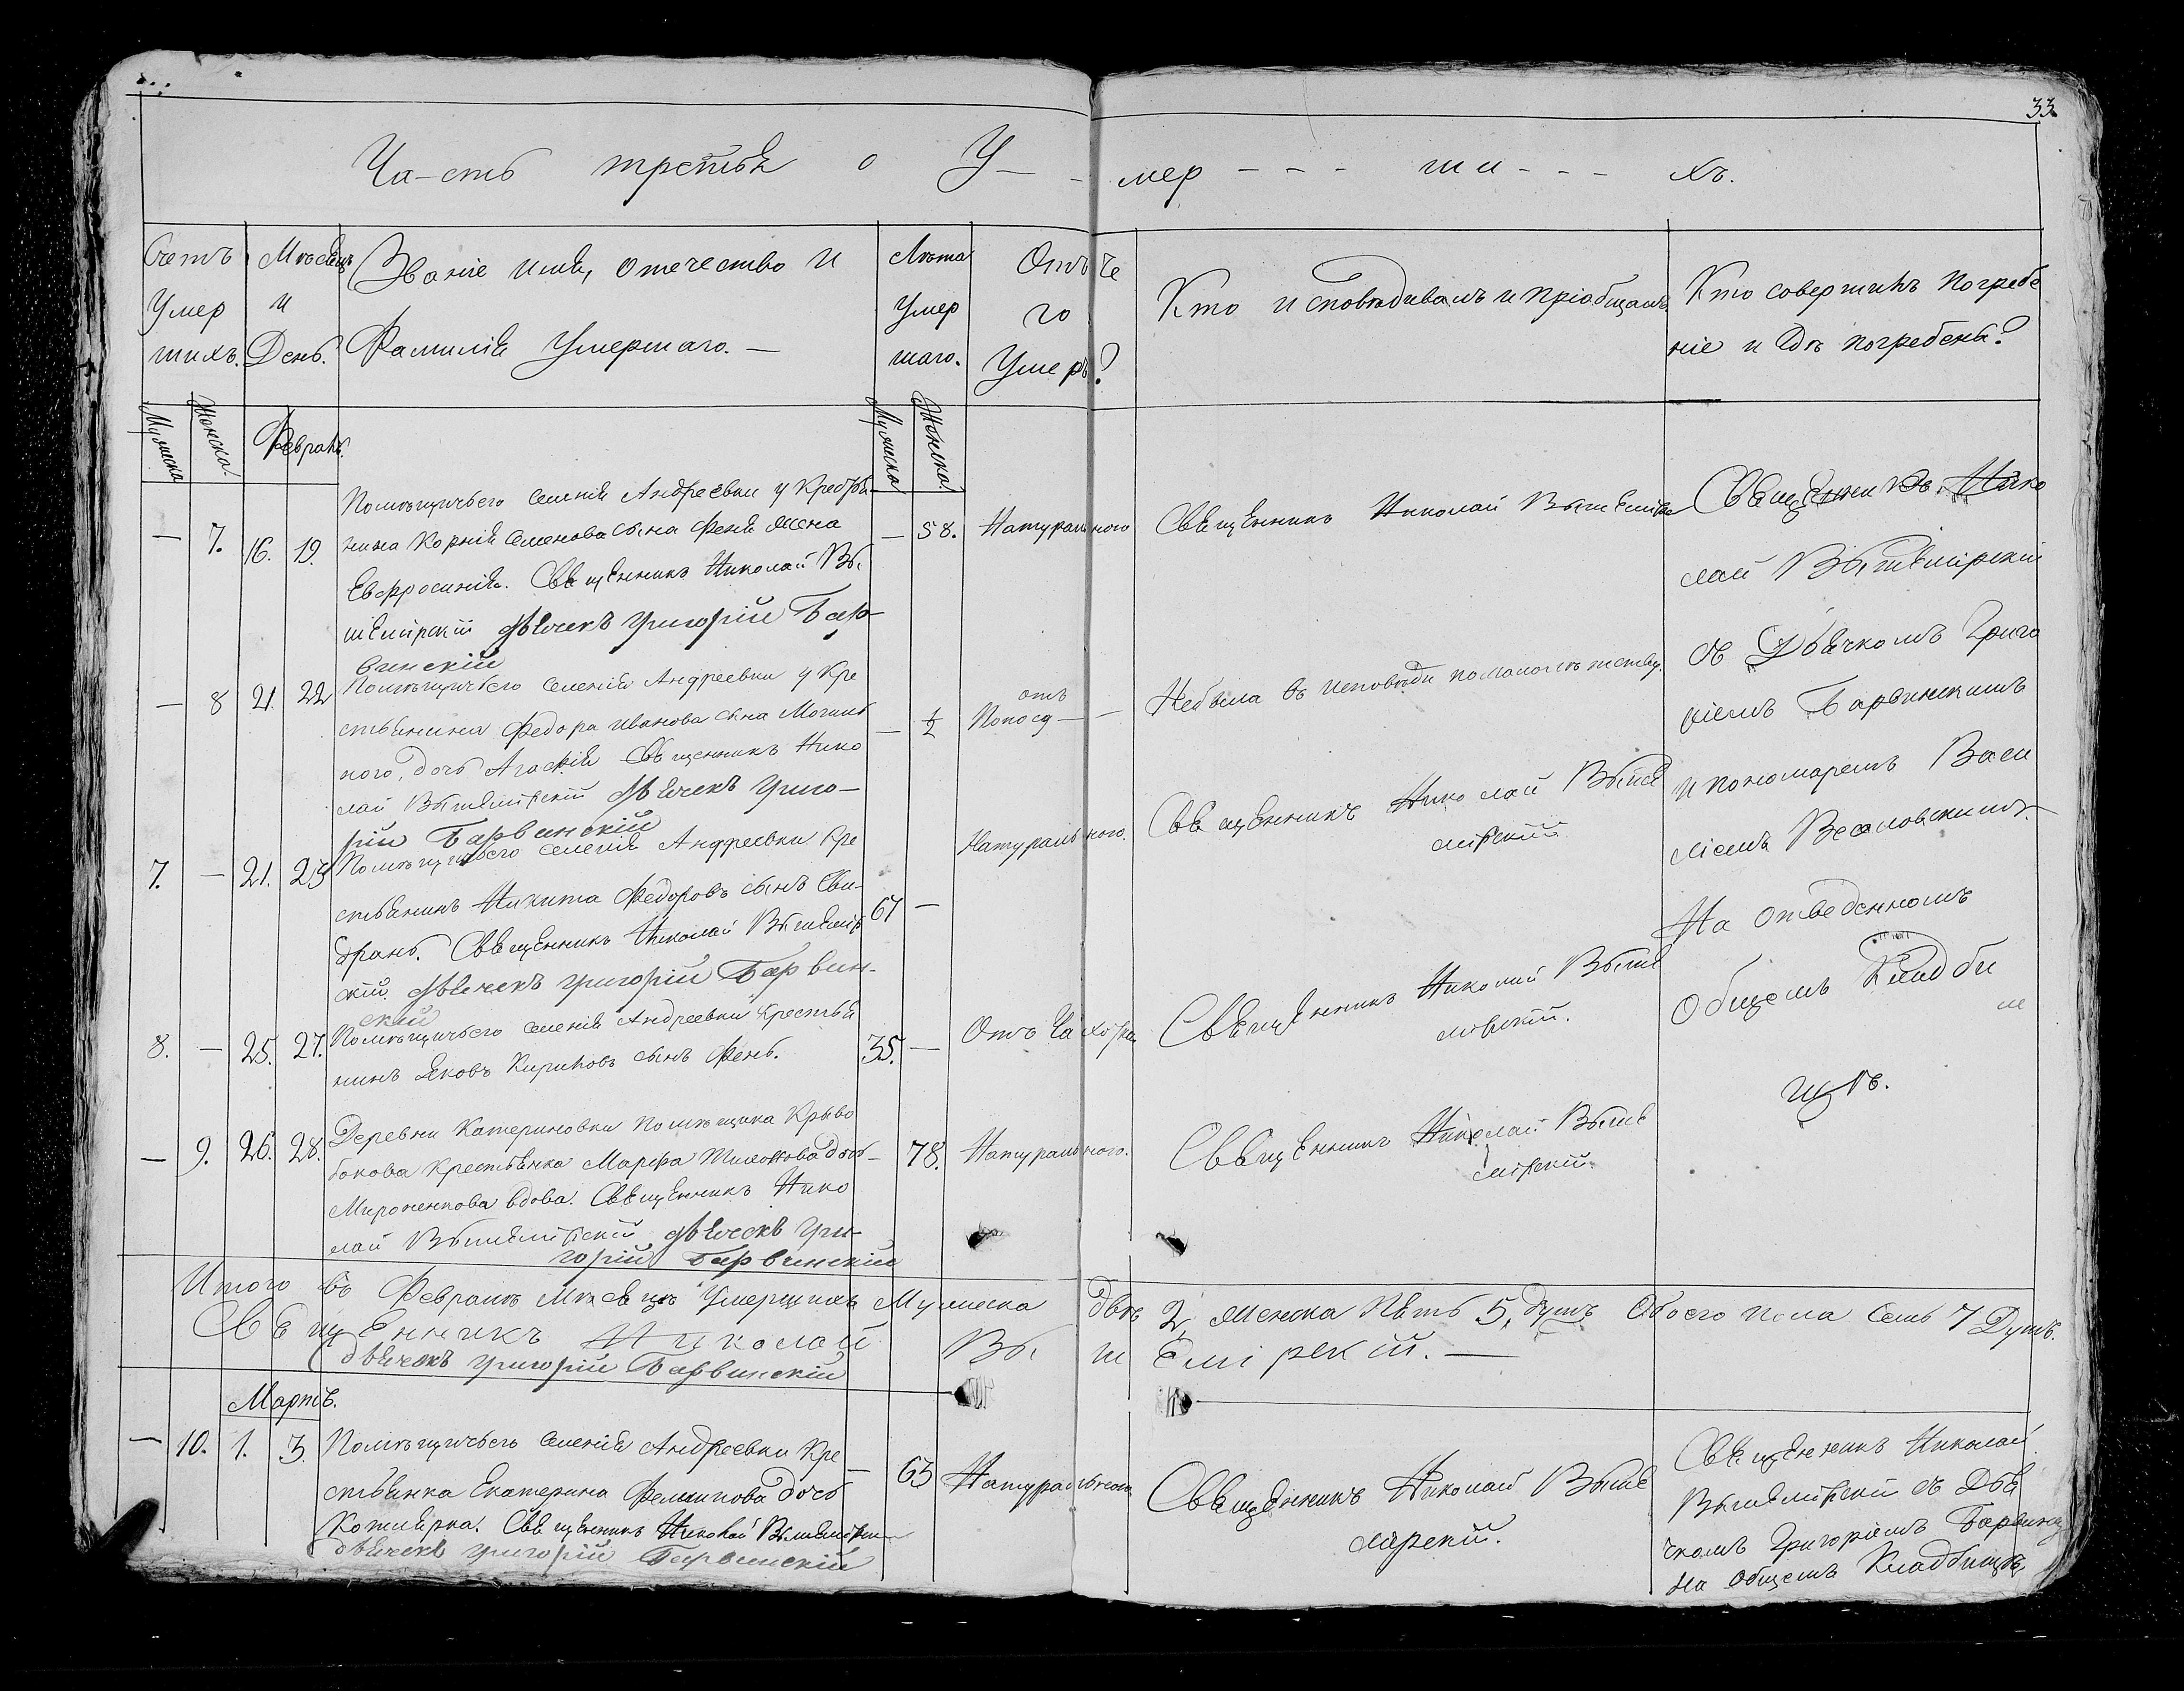 33.
Ча-сть третья о У- - мер - - - ши - - - хъ.
Счетъ
Умер
шихъ.
Мѣсяцъ
и
День.
Званіе имя, отечество и
Фамилія Умершаго. —
Лѣта
Умер
шаго.
Отъ че
го
Умеръ?
Кто исповѣдивалъ и пріобщалъ
Кто совершилъ погребе
ніе и гдѣ погребены?
Мужеска
Женска
Февраль.
Мужеска
Женска
— 7. 16. 19.
Помѣщичьего селенія Андреевки у Крестья
нина Корнія Семенова сына Феня жена
Евфросинія. Священникъ Николай Вы
шемірскій Дьячекъ Григорій Бар-
винскій
— 58. Натурального
Священникъ Николай Вышемірс
Священникъ Нико
лай Вышемірскій
съ Дьячкомъ Григо
ріемъ Барвинскимъ
и пономаремъ Васи
ліемъ Веселовскимъ.
На отведенномъ
Общемъ Кладби
щѣ.
— 8 21. 22
Помѣщичьего селенія Андреевки у Кре
стьянина Федора Иванова сына Могиль
ного, дочь Агафія Священникъ Нико
лай Вышемірскій Дьячекъ Григо-
рій Барвинскій
— ½
отъ
Поносу —
Небыла въ исповѣди по малолѣтству.
7. — 21. 23
Помѣщичьего селенія Андреевки Кре
стьянинъ Никита Федоровъ сынъ Сви-
дранъ. Священникъ Николай Вышемір
скій. Дьячекъ Григорій Барвин-
скій
67 —
Натурального.
Священникъ Николай Выше
мірскій
8. — 25. 27.
Помѣщичьего селенія Андреевки Крестья
нинъ Яковъ Кириловъ сынъ Фень.
35. —
Отъ Чахотки
Священникъ Николай Выше
мірскій.
— 9. 26. 28.
Деревни Катериновки помѣщика Криво
бокова Крестьянка Марфа Тихонова дочь
Мироненкова вдова. Священникъ Нико
лай Вышемірскій Дьячекъ Гри-
горій Барвинскій
78. Натурального.
Священникъ Николай Выше
мірскій.
Итого въ Февралѣ Мѣсяцѣ Умерщихъ Мужеска двѣ 2, женска Пять 5, душъ Обоего пола Семь 7 Душъ.
Священникъ Николай Вы ш емірскій. —
Дьячекъ Григорій Барвинскій
Мартъ.
— 10. 1. 3.
Помѣщичьего селенія Андреевки Кре
стьянка Екатерина Филипова дочь
Котлярка. Священникъ Николай Вышемірскі
Дьячекъ Григорій Барвинскій
— 63 Натурального
Священникъ Николай Выше
мірскій.
Священникъ Николай
Вышемірскій съ Дья
чкомъ Григоріемъ Барвинс
на общемъ Кладбищѣ